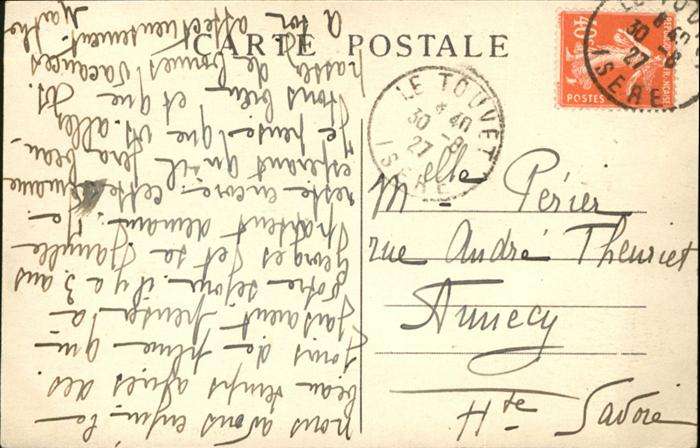 CARTE POSTALE
LE TOUVET
* 40
30 -8
27
ISERE
40c
POSTES
LE TOUV
30 -8
27
ISERE
Melle Périer
rue André Theuriet
Annecy
Hte Savoie
nous avons enfin le
beau temps après des
jours de pluie qui
faisaient penser à
votre séjour il y a 3 ans
Georges et sa famille
partent demain, je
reste encore cette semaine
espérant qu'il fera beau
Je pense que vs allez
tous bien et que vs
passez de bonnes vacances
A toi affectueusement
Marthe